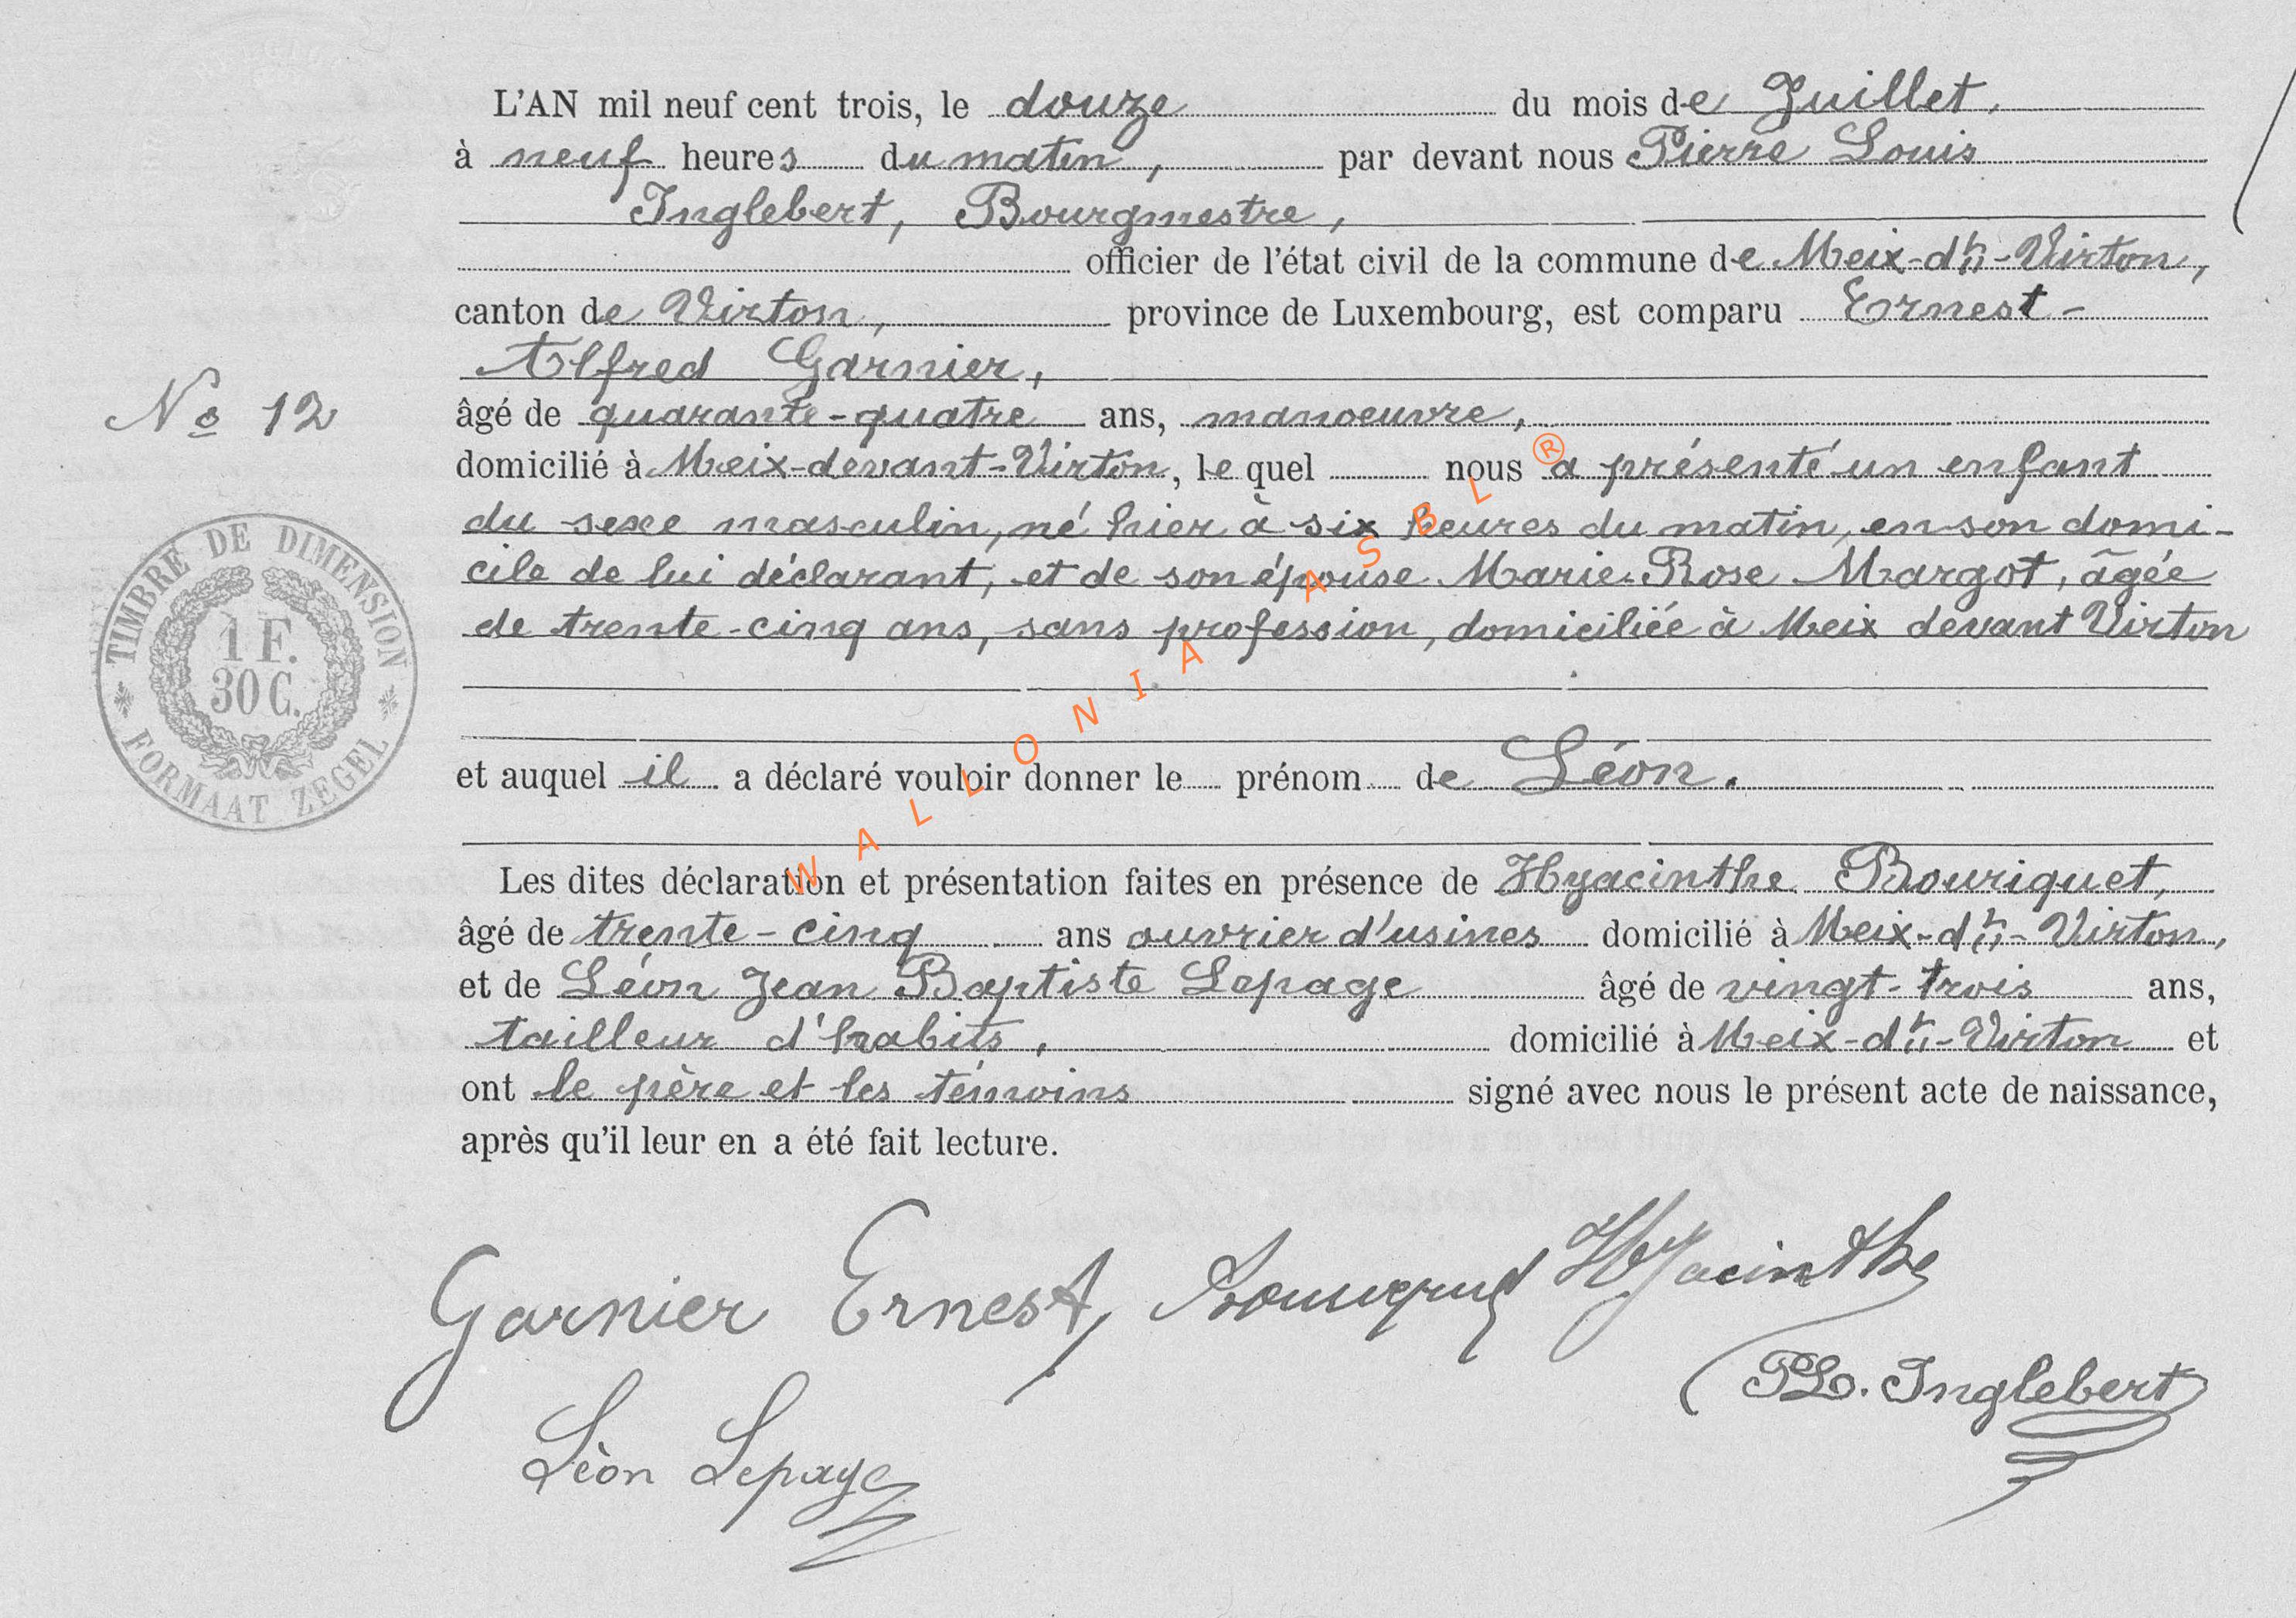 L'AN mil neuf cent trois, le douze du mois de Juillet,
à neuf heures du matin, par devant nous Pierre Louis
Inglebert, Bourgmestre,
officier de l'état civil de la commune de Meix-dt-Virton,
canton de Virton, province de Luxembourg, est comparu Ernest-
Alfred Garnier,
No 12
âgé de quarante-quatre ans, manoeuvre,
domicilié à Meix-devant-Virton, lequel nous a présenté un enfant
du sexe masculin, né hier à six heures du matin, en son domi-
cile de lui déclarant, et de son épouse Marie-Rose Margot, âgée
de trente-cinq ans, sans profession, domiciliée à Meix devant Virton
TIMBRE DE DIMENSION
1 F.
30 C.
FORMAAT ZEGEL
et auquel il a déclaré vouloir donner le prénom de Léon.
Les dites déclaration et présentation faites en présence de Hyacinthe Bouriquet,
âgé de trente-cinq ans ouvrier d'usines domicilié à Meix-dt-Virton,
et de Léon Jean Baptiste Lepage âgé de vingt-trois ans,
tailleur d'habits, domicilié à Meix-dt-Virton et
ont le père et les témoins signé avec nous le présent acte de naissance,
après qu'il leur en a été fait lecture.
Garnier Ernest, Bouriquet Hyacinthe
PL. Inglebert
Léon Lepage
WALLONIA ASBL ®